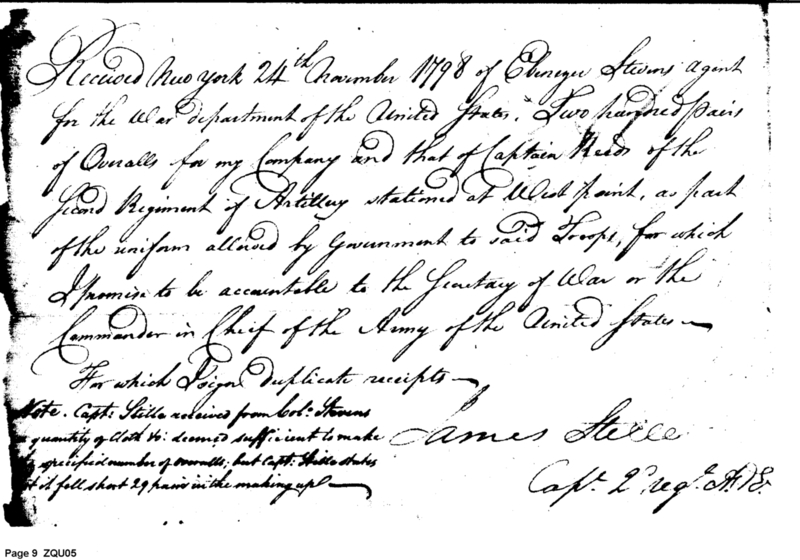 Received New York 24th November 1798 of Ebenezer Stevens agent
for the War department of the United States. Two hundred pairs
of Overalls for my Company and that of Captain Reads of the
Second Regiment of Artillery stationed at West point, as part
of the uniform allowed by Government to said Troops, for which
I promise to be accountable to the Secretary of War or the
Commander in Cheif of the Army of the United States
For which I sign duplicate receipts
Note. Capt: Stille received from Col: Stevens
a quantity of cloth &c: deemed sufficient to make
specified number of overalls; but Capt: Stille states
it fell short 29 pairs in the making up
James Stille
Capt. 2d regt. A&E.
Page 9 ZQU05